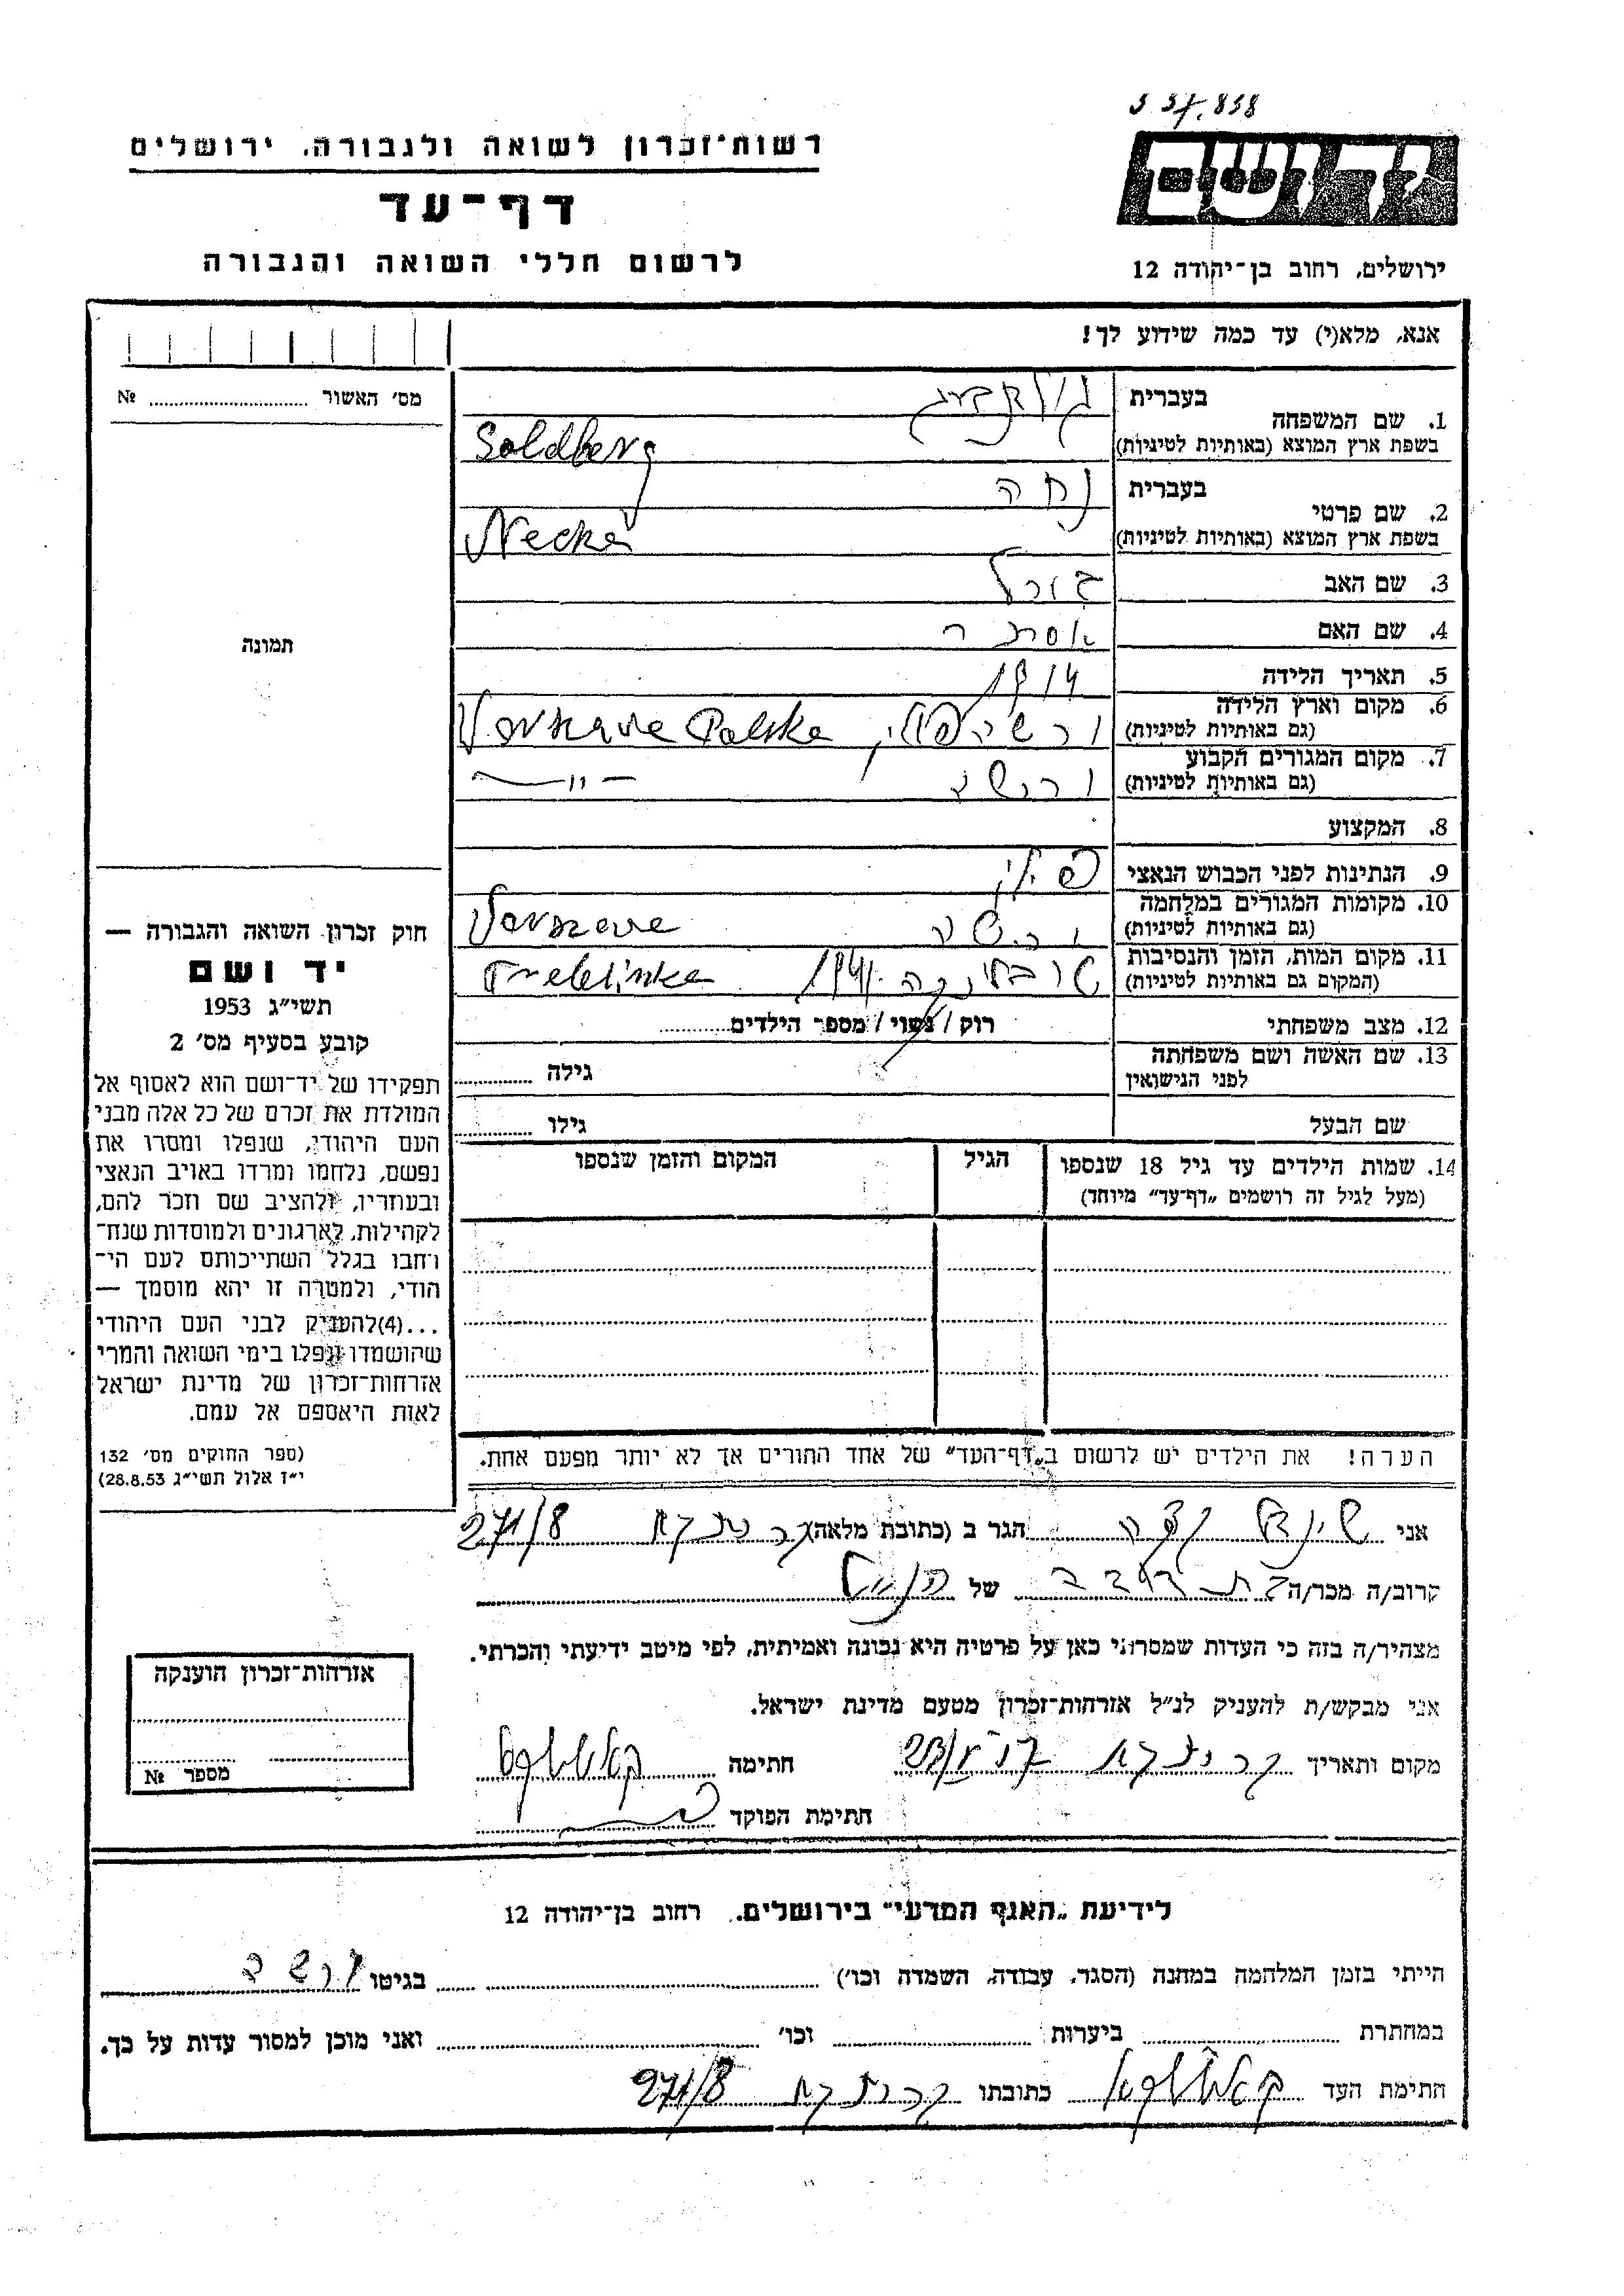 838
רשות־זכרון לשואה ולגבורה, ירושלים
יד ושם
דף־עד
לרשום חללי השואה והגבורה
ירושלים, רחוב בן־יהודה 12
אנא, מלא(י) עד כמה שידוע לך!
מס׳ האשור № ........
1. שם המשפחה בעברית גולדברג
בשפת ארץ המוצא (באותיות לטיניות) Goldberg
2. שם פרטי בעברית נחה
בשפת ארץ המוצא (באותיות לטיניות) Necha
3. שם האב
4. שם האם אסתר
5. תאריך הלידה 1914
6. מקום וארץ הלידה (גם באותיות לטיניות) ורשה פולין, Varszava Polska
7. מקום המגורים הקבוע (גם באותיות לטיניות) ורשה — " —
8. המקצוע
9. הנתינות לפני הכבוש הנאצי פולין
10. מקומות המגורים במלחמה (גם באותיות לטיניות) ורשה Varszava
11. מקום המות, הזמן והנסיבות (המקום גם באותיות לטיניות) טרבלינקה Treblinka
12. מצב משפחתי רוק / נשוי / מספר הילדים........
13. שם האשה ושם משפחתה לפני הנישואין גילה ........
שם הבעל גילו ........
14. שמות הילדים עד גיל 18 שנספו הגיל המקום והזמן שנספו
(מעל לגיל זה רושמים „דף־עד״ מיוחד)
הערה! את הילדים יש לרשום ב„דף־העד״ של אחד ההורים אך לא יותר מפעם אחת.
תמונה
חוק זכרון השואה והגבורה —
יד ושם
תשי״ג 1953
קובע בסעיף מס׳ 2
תפקידו של יד־ושם הוא לאסוף אל
המולדת את זכרם של כל אלה מבני
העם היהודי, שנפלו ומסרו את
נפשם, נלחמו ומרדו באויב הנאצי
ובעוזריו, ולהציב שם וזכר להם,
לקהילות, לארגונים ולמוסדות שנח־
רחבו בגלל השתייכותם לעם הי־
הודי, ולמטרה זו יהא מוסמך —
...(4)להעניק לבני העם היהודי
שהושמדו ונפלו בימי השואה והמרי
אזרחות־זכרון של מדינת ישראל
לאות היאספם אל עמם.
(ספר החוקים מס׳ 132
י״ז אלול תשי״ג 28.8.53)
אני הגר ב (כתובת מלאה) 271/8
קרוב/ה מכר/ה של
מצהיר/ה בזה כי העדות שמסרתי כאן על פרטיה היא נכונה ואמיתית, לפי מיטב ידיעתי והכרתי.
אני מבקש/ת להעניק לנ״ל אזרחות־זכרון מטעם מדינת ישראל.
מקום ותאריך חתימה
חתימת הפוקד
אזרחות־זכרון הוענקה
מספר №
לידיעת „האגף המדעי״ בירושלים. רחוב בן־יהודה 12
הייתי בזמן המלחמה במחנה (הסגר, עבודה, השמדה וכו׳) ........ בגיטו ורשה
במחתרת ........ ביערות ........ וכו׳ ........ ואני מוכן למסור עדות על כך.
חתימת העד כתובתו 271/8